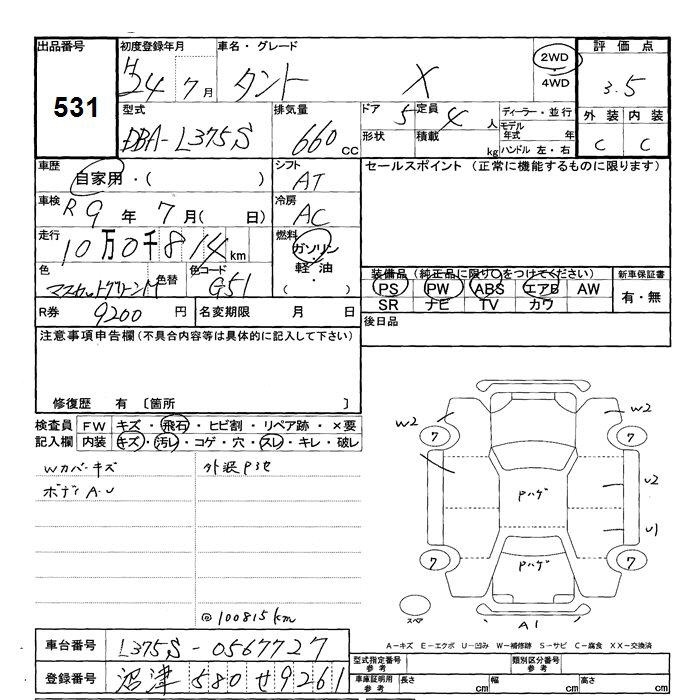 出品番号 初度登録年月 車名・グレード 評価点
531
H 24 7月 タント X 2WD 4WD 3.5
型式 排気量 ドア 5 定員 4 人 ディーラー・並行 外装 内装
DBA-L375S 660 cc 形状 積載 kg モデル年式 年 ハンドル 左・右 C C
車歴 シフト セールスポイント (正常に機能するものに限ります)
自家用・( ) AT
車検 冷房
R9年 7月( 日) AC
走行 燃料
10万0千814km ガソリン・軽油・( )
色 色替 色コード 装備品(純正品に限り○をつけてください) 新車保証書
マスカットグリーンM G51 PS PW ABS エアB AW 有・無
SR ナビ TV カワ
R券 9200円 名変期限 月 日 後日品
注意事項申告欄(不具合内容等は具体的に記入して下さい)
修復歴 有 〔箇所 〕
検査員 FW キズ・飛石・ヒビ割・リペア跡・×要
記入欄 内装 キズ・汚レ・コゲ・穴・スレ・キレ・破レ
Wカバーキズ 外装Pヨゴ
ボディA・U
W2 W2
7 7
Pハゲ U2
U1
7 Pハゲ 7
スペア A1
@100815km
A-キズ E-エクボ U-凹み W-補修跡 S-サビ C-腐食 XX-交換済
車台番号 L375S-0567727 型式指定番号 参考 類別区分番号 参考
登録番号 沼津 580 せ 9261 車庫証明用 参考 長さ cm 幅 cm 高さ cm